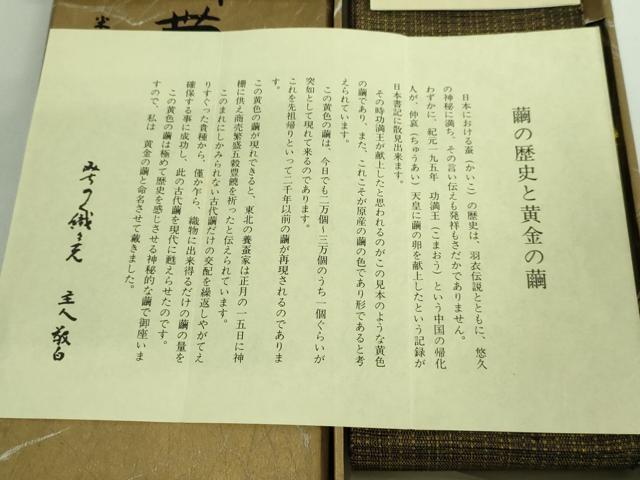 繭の歴史と黄金の繭
日本における蚕（かいこ）の歴史は、羽衣伝説とともに、悠久
の神秘に満ち、その言い伝えも発祥もさだかでありません。
わずかに、紀元一九五年　功満王（こまおう）という中国の帰化
人が、仲哀（ちゅうあい）天皇に繭の卵を献上したという記録が
日本書記に散見出来ます。
その時功満王が献上したと思われるのがこの見本のような黄色
の繭であり、また、これこそが原産の繭の色であり形であると考
えられています。
この黄色の繭は、今日でも二万個〜三万個のうち一個ぐらいが
突如として現れて来るのであります。
これを先祖帰りといって二千年以前の繭が再現されるのでありま
す。
この黄色の繭が現れできると、東北の養蚕家は正月の一五日に神
棚に供え商売繁盛五穀豊饒を祈ったと伝えられています。
このまれにしかみられない古代繭だけの交配を繰返しやがてえ
りすぐった貴種から、僅か乍ら、織物に出来得るだけの繭の量を
確保する事に成功し、此の古代繭を現代に甦えらせたのです。
この黄色の繭は極めて歴史を感じさせる神秘的な繭で御座いま
すので、私は　黄金の繭と命名させて戴きました。
主人　敬白